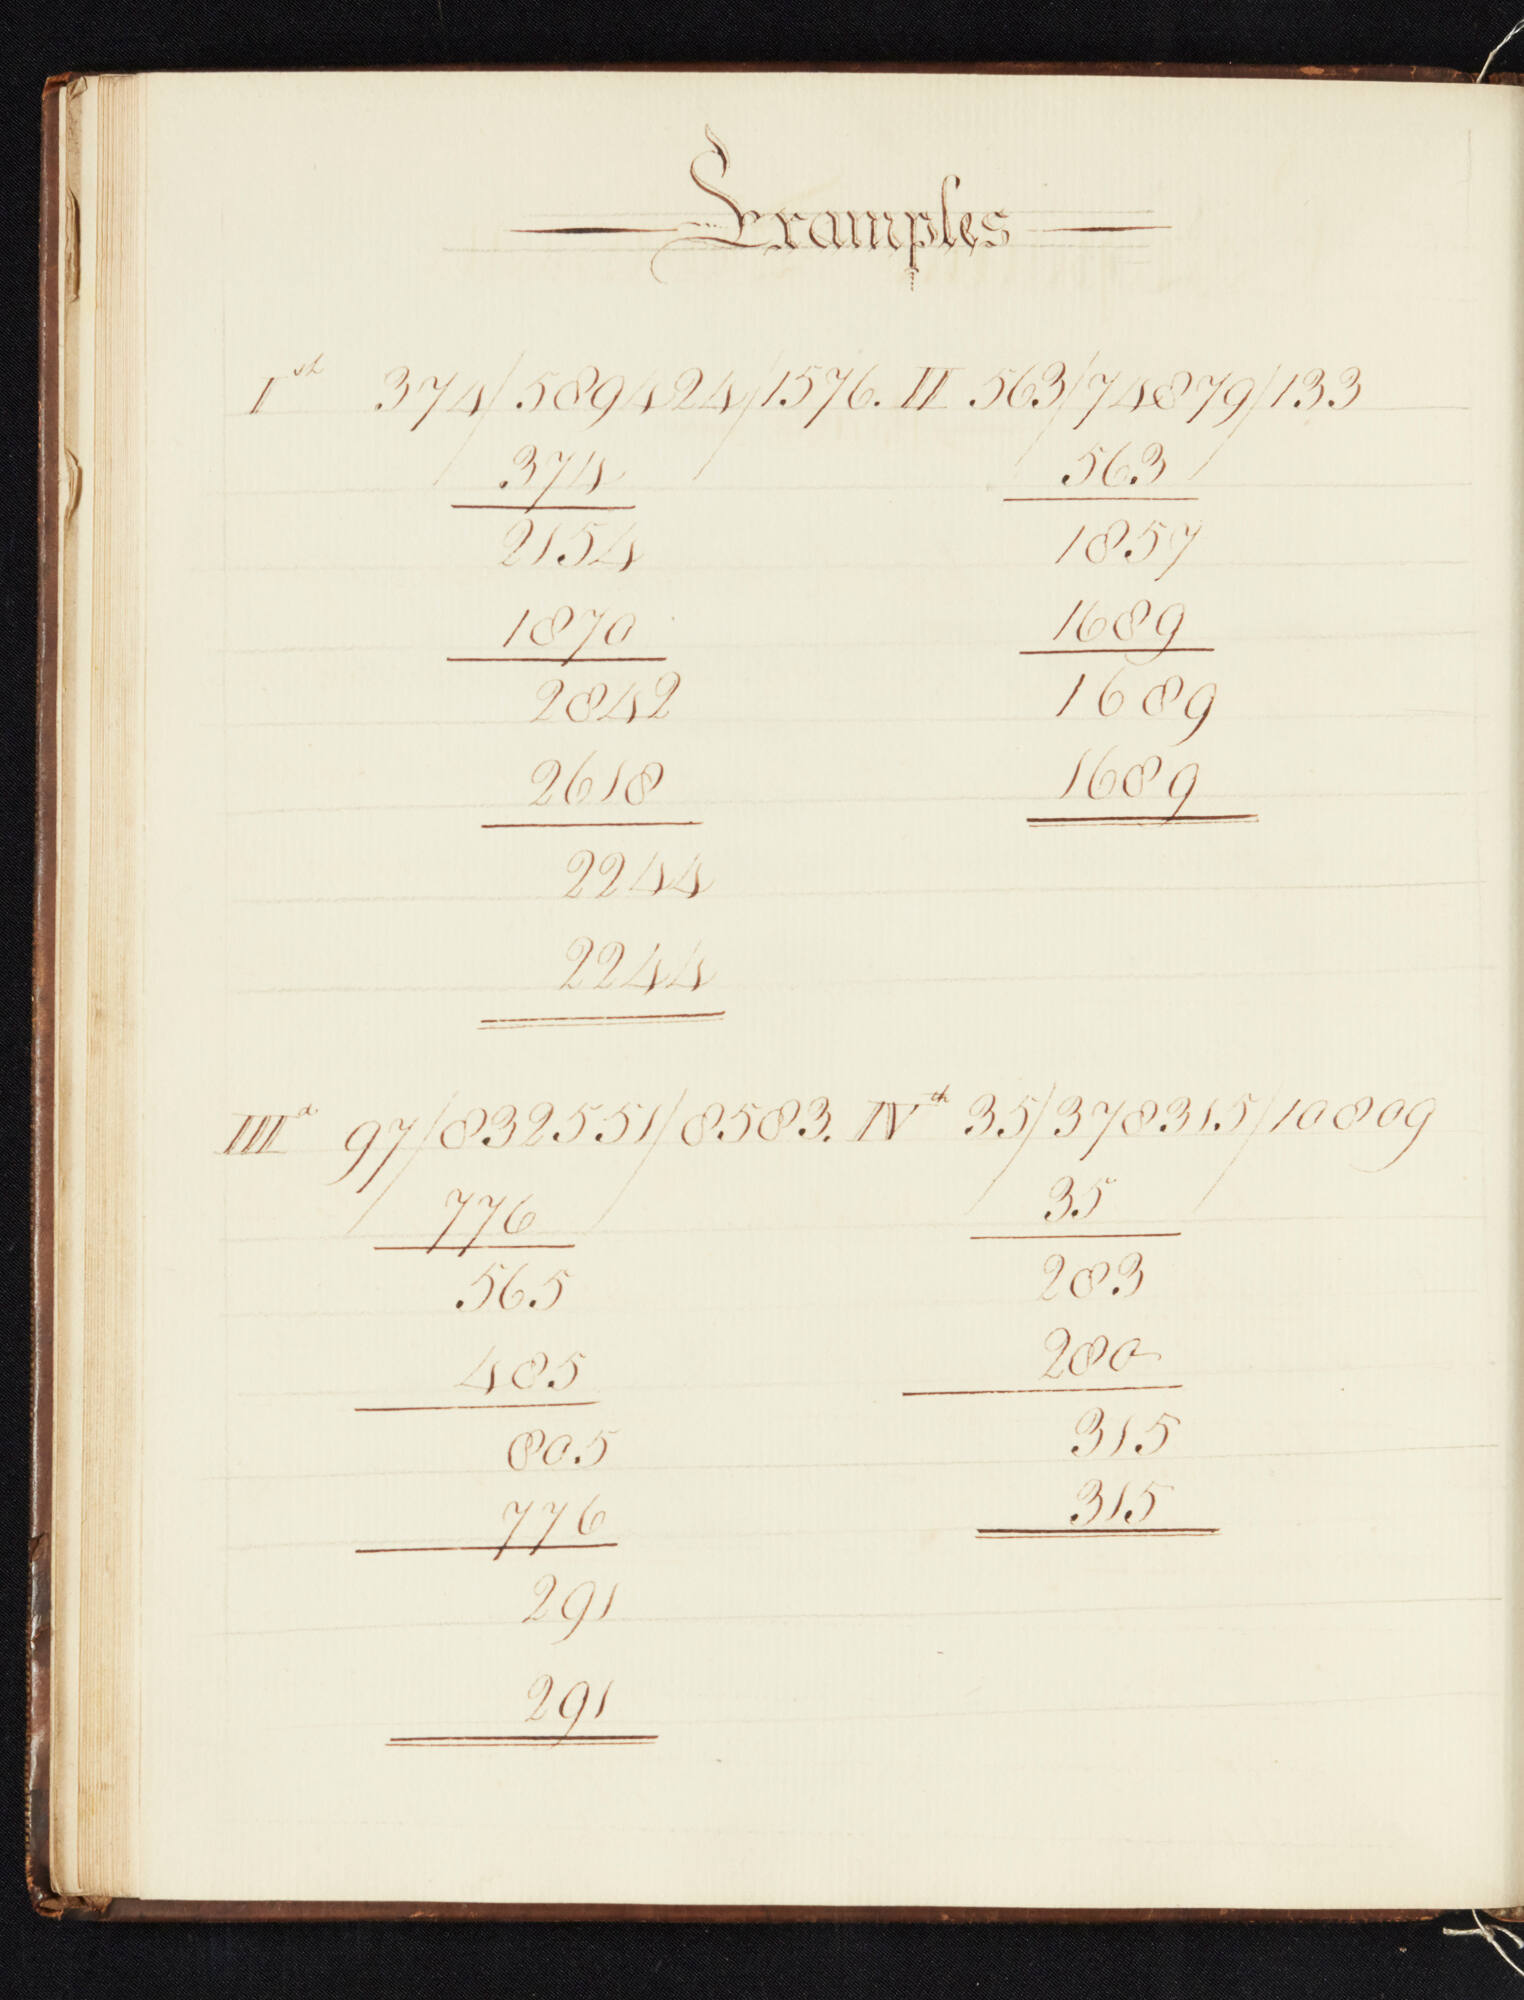 Examples
Ist 374/589424/1576. II 563/74879/133
374 563
2154 1857
1870 1689
2842 1689
2618 1689
2244
2244
IIId 97/832551/8583. IVth 35/378315/10809
776 35
565 283
485 280
805 315
776 315
291
291